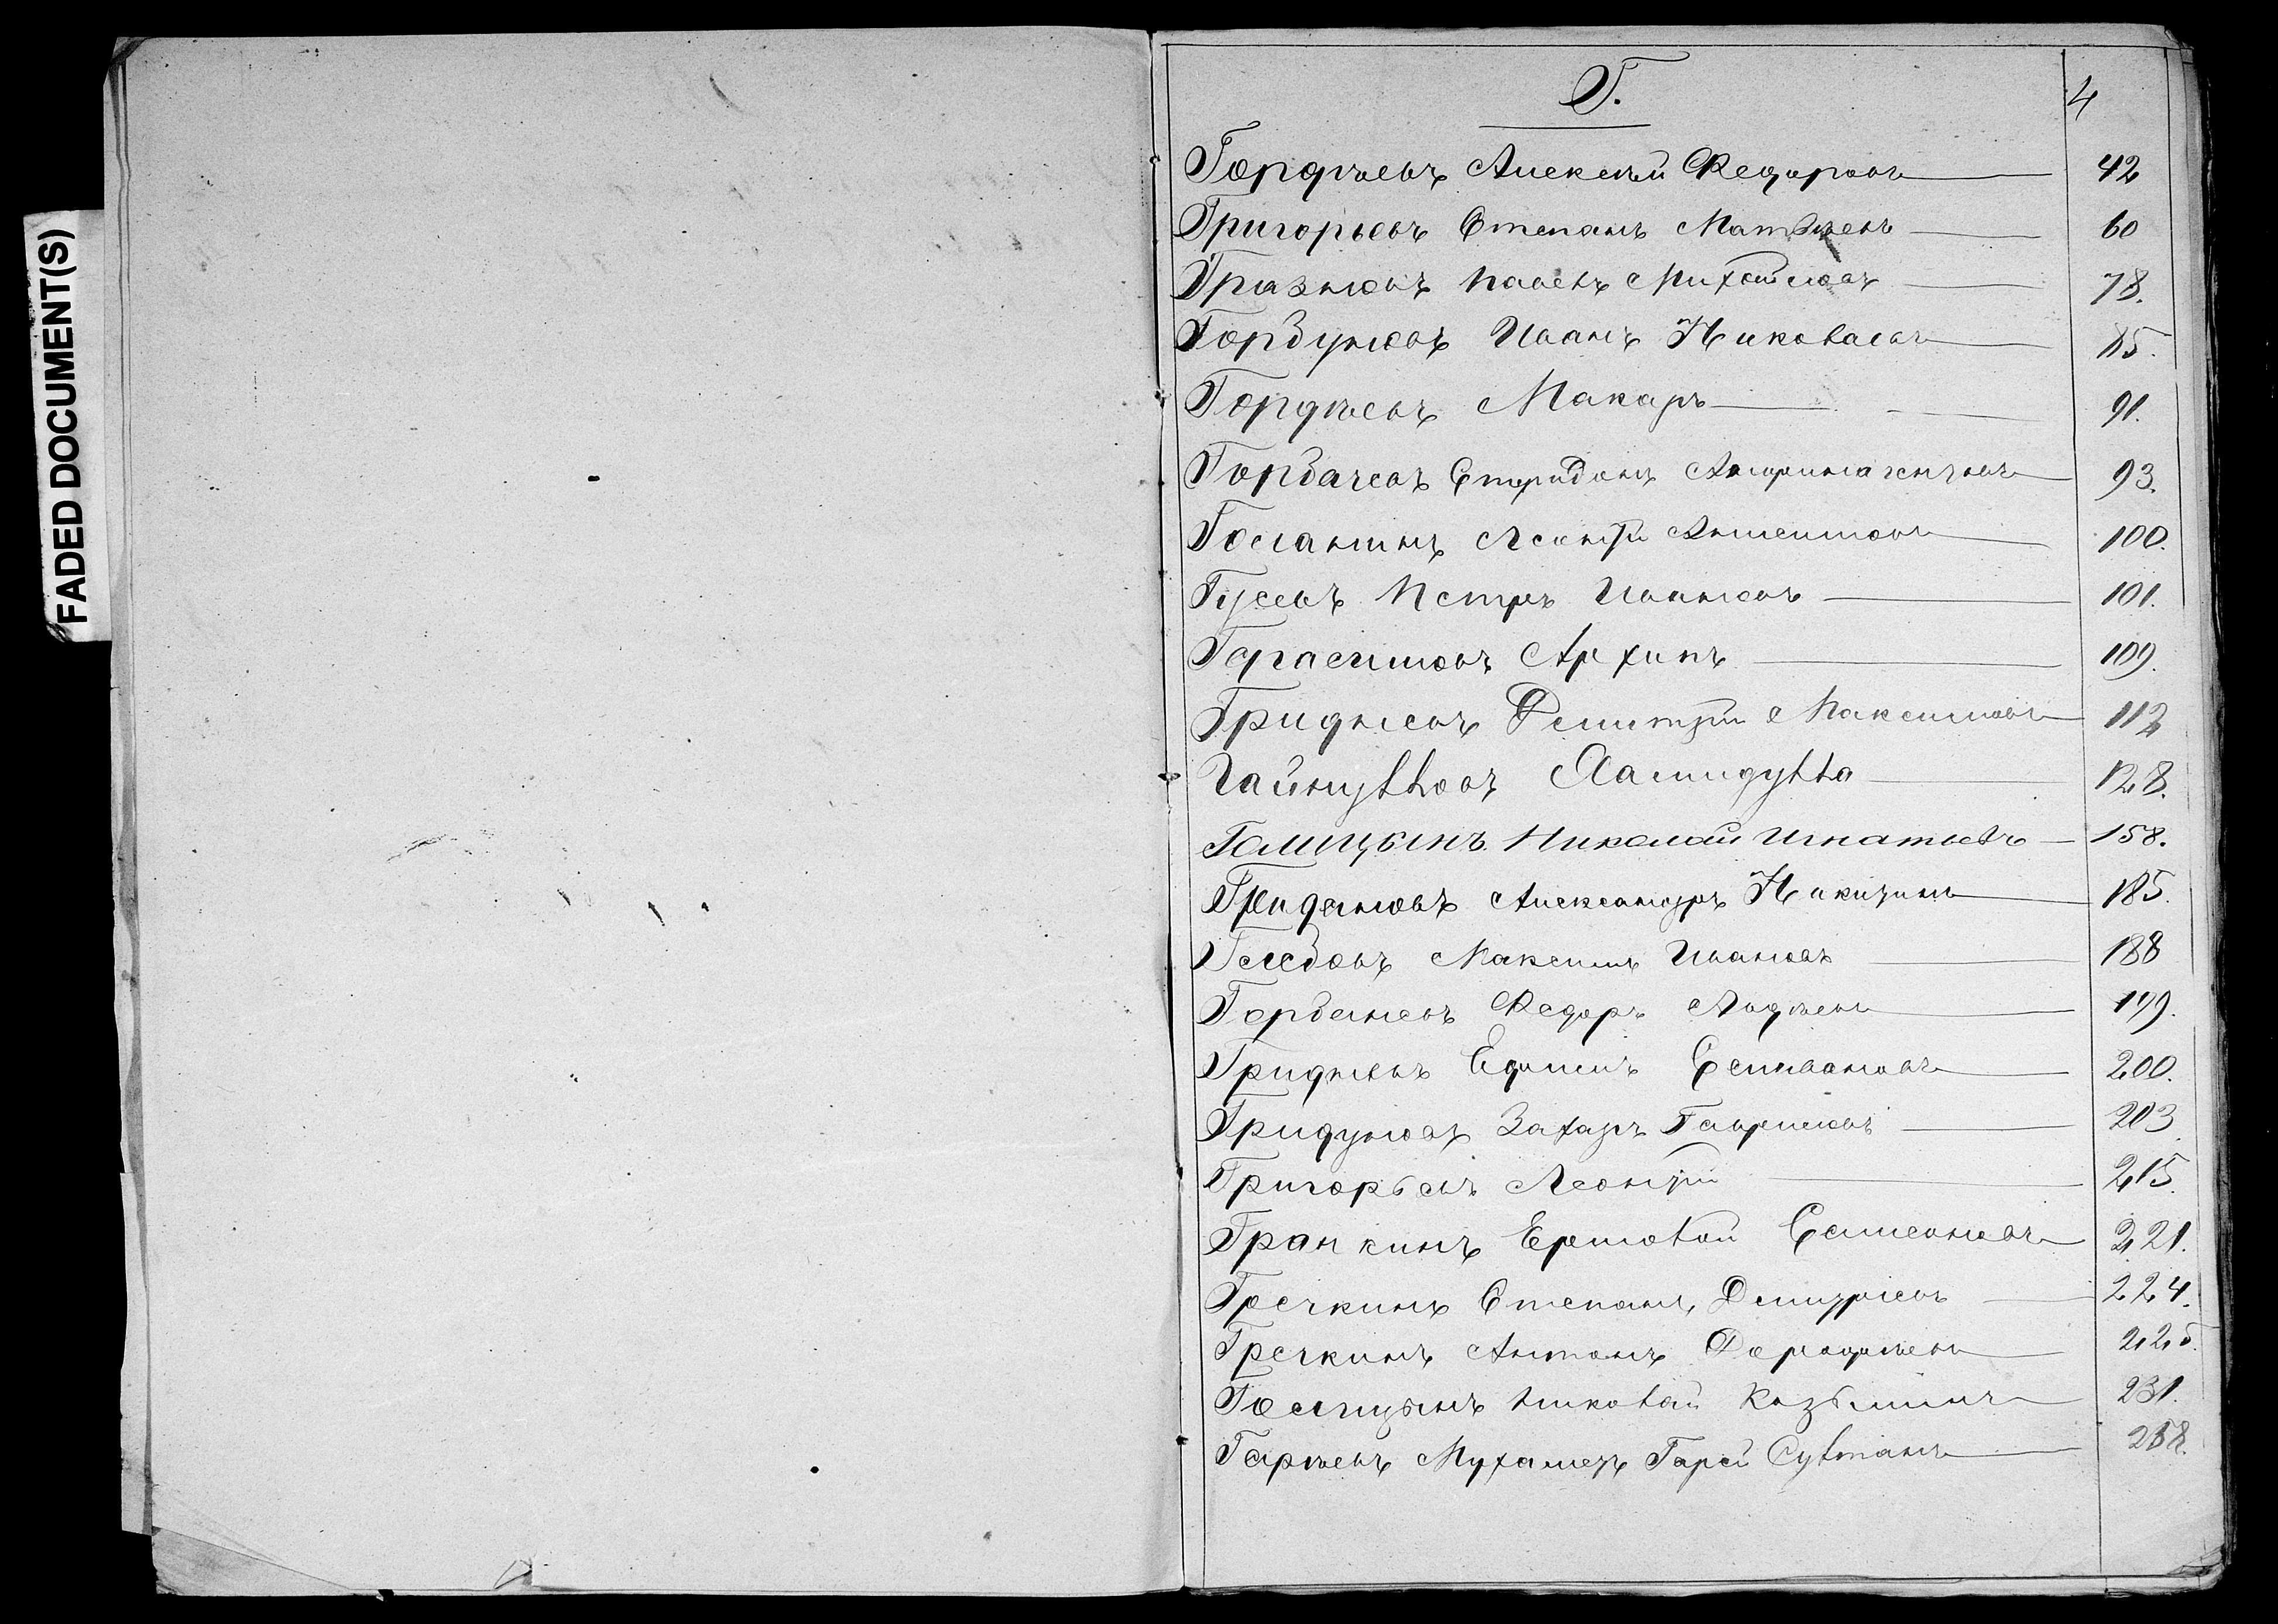 FADED DOCUMENT(S)
Г.
4
Гордѣевъ Алексѣй Федоровъ 42
Григорьевъ Степанъ Матвѣевъ 60
Грязновъ Павелъ Михайловъ 78.
Горбуновъ Иванъ Николаевъ 85.
Гордѣевъ Макаръ 91.
Горбачевъ Спиридонъ 93.
Голанинъ Леонтій 100.
Гусевъ Петръ Ивановъ 101.
Гарасимовъ Архипъ 109.
Гридневъ Дмитрій Максимовъ 112
Гайнулловъ Хамидулла 128.
Галицынъ Николай Игнатьевъ 158.
Александръ Никитинъ 185.
Глебовъ Максимъ Ивановъ 188
Федоръ Авдѣевъ 199.
Гридневъ Ефимъ Селивановъ 200.
Гридуновъ Захаръ Гавриловъ 203
Григорьевъ Леонтій 215.
Гранкинъ Ермолай Семеновъ 221.
Гречкинъ Степанъ Дмитріевъ 224.
Гречкинъ Антонъ Дорофѣевъ 225.
Голицынъ Николай Козьминъ 231.
Гарѣевъ Мухаметъ Гарей Султанъ 258.